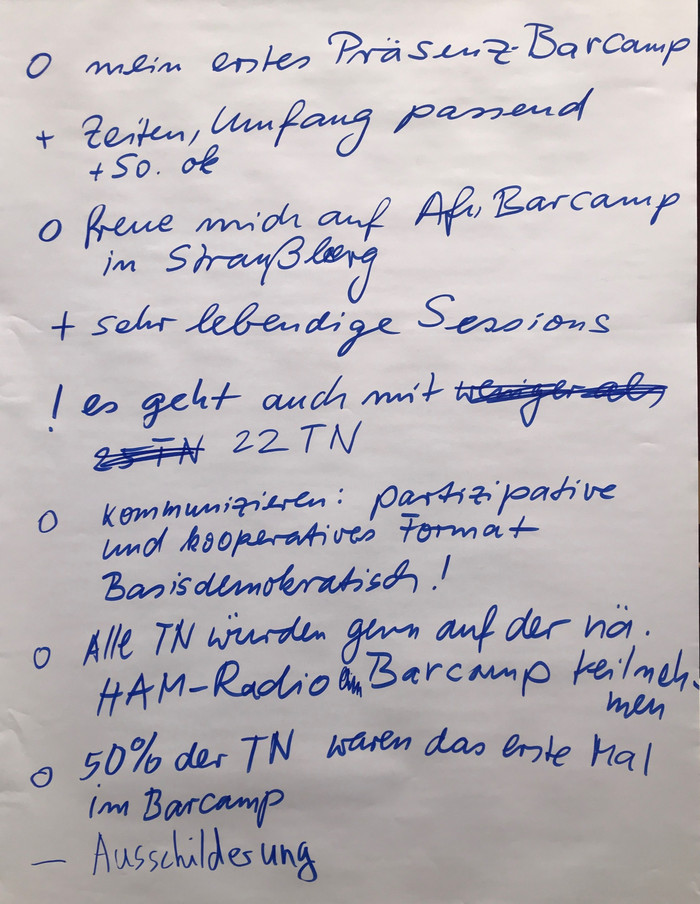 o mein erstes Präsenz-Barcamp
+ Zeiten, Umfang passend
+ So. ok
o freue mich auf Afu, Barcamp
in Straußberg
+ sehr lebendige Sessions
! es geht auch mit weniger als
25 TN 22 TN
o kommunizieren: partizipative
und kooperatives Format
Basisdemokratisch!
o Alle TN würden gern auf der nä.
HAM-Radio am Barcamp teilneh-
men
o 50% der TN waren das erste Mal
im Barcamp
— Ausschilderung